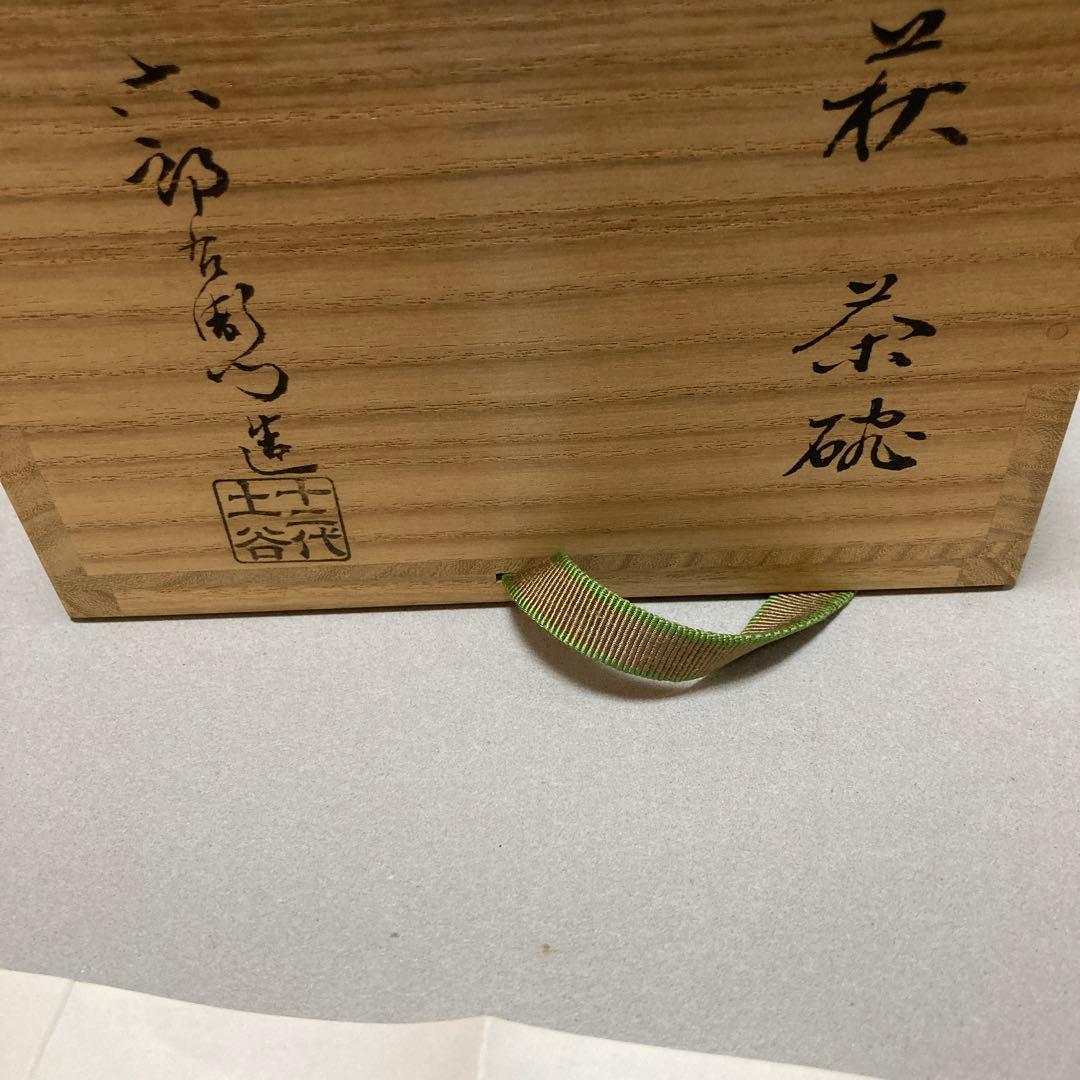 萩 茶碗
六郎右衛門造
十二代
土谷